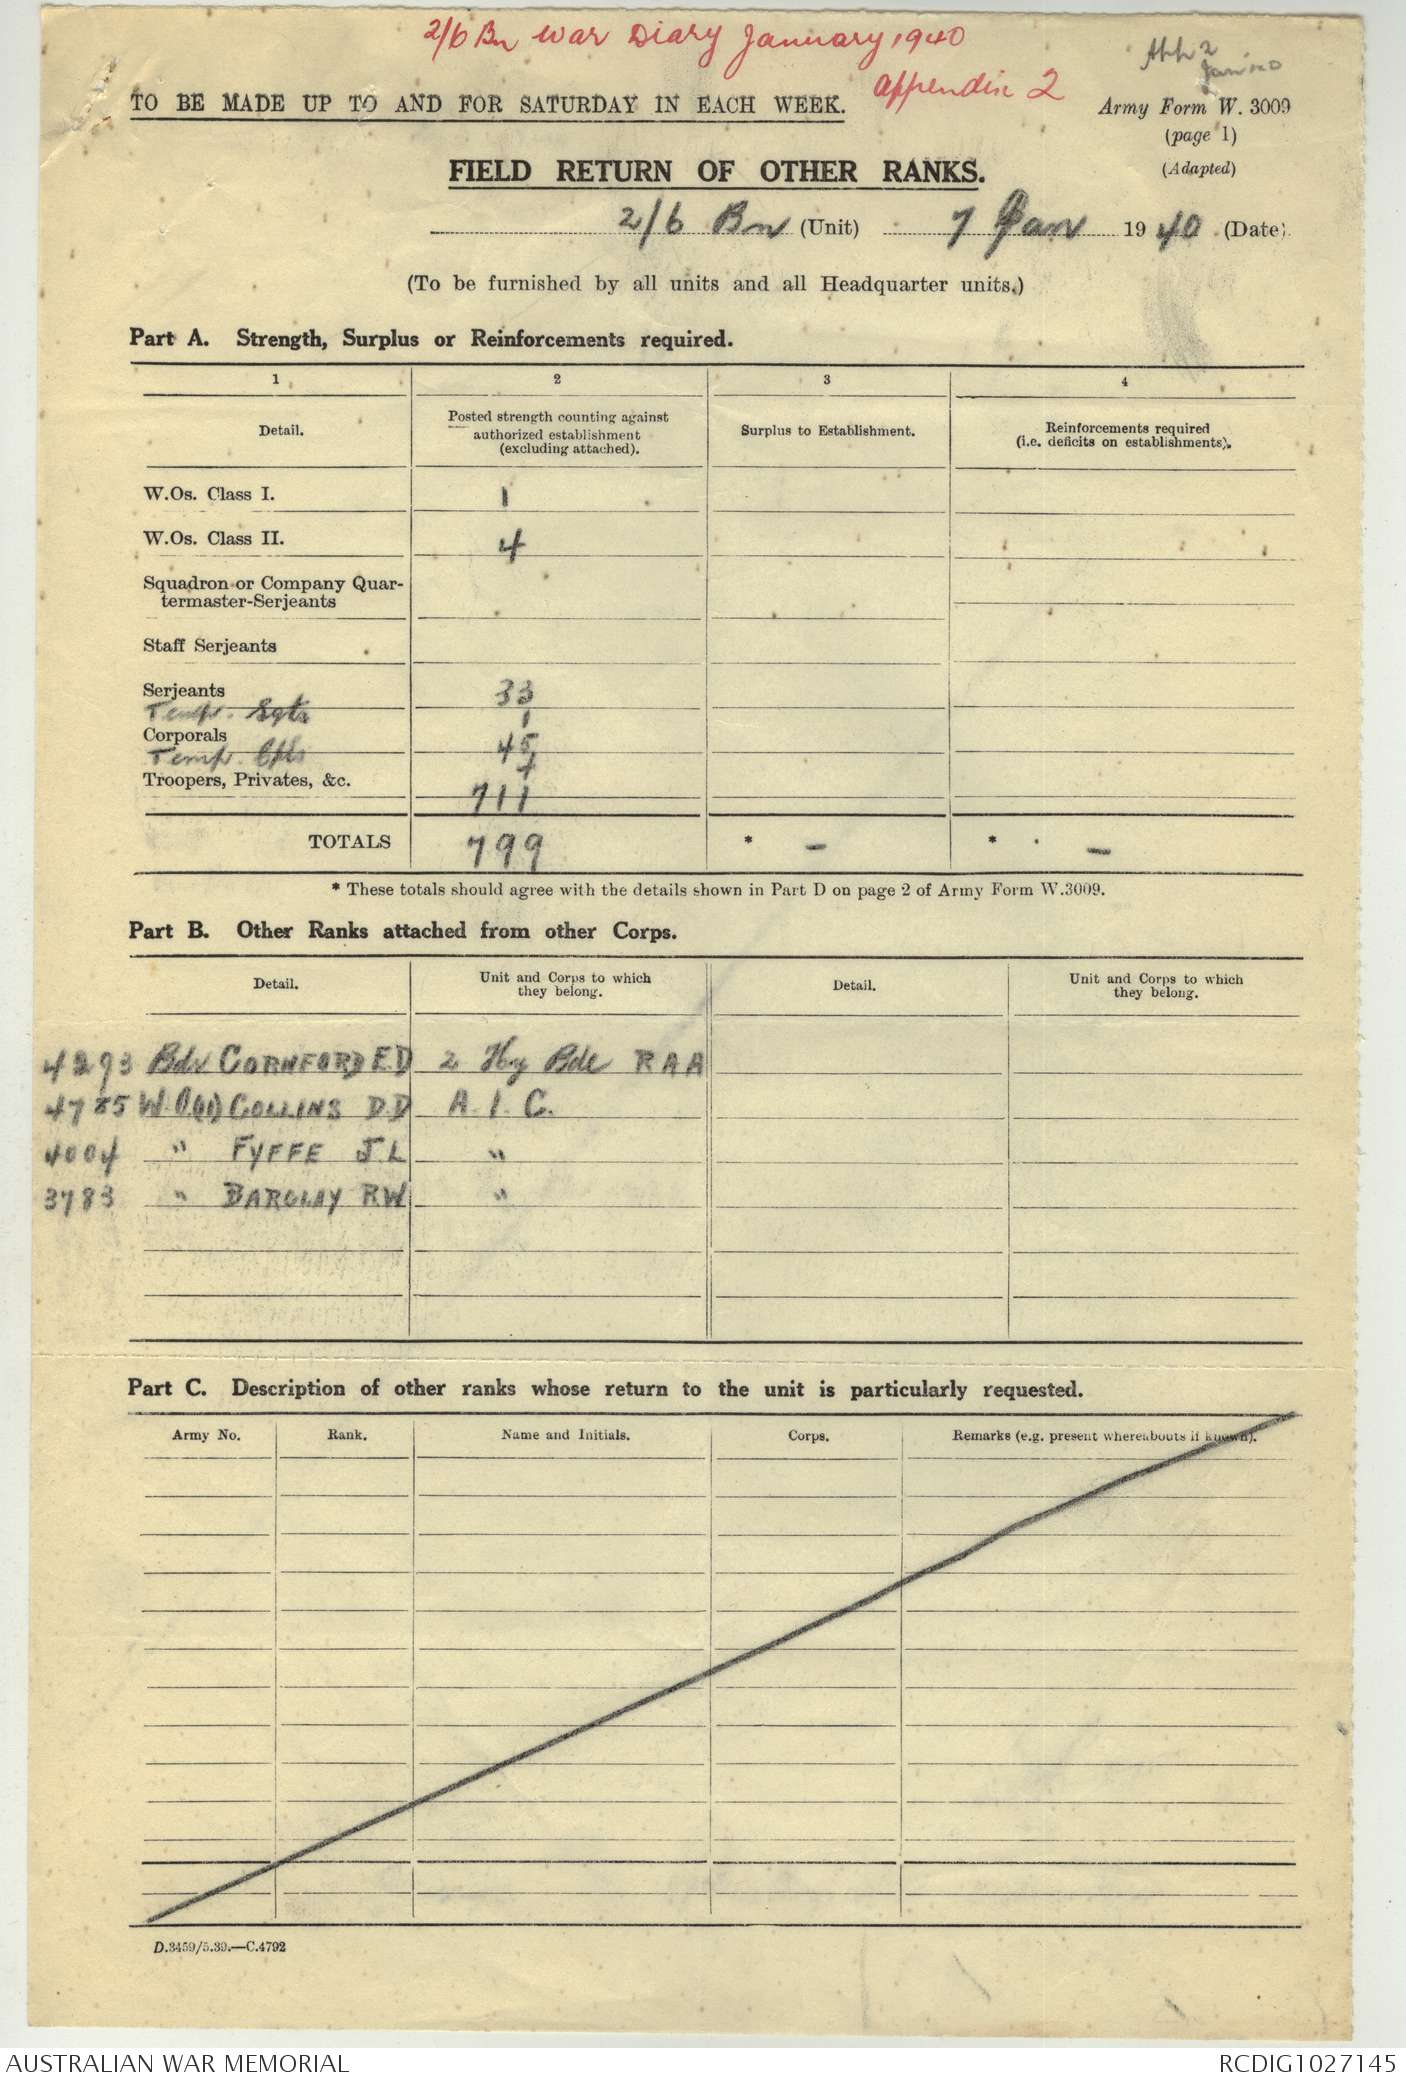 2/6 Bn War Diary January 1940
Appendix 2
App 2
Jan
TO BE MADE UP TO AND FOR SATURDAY IN EACH WEEK.
Army Form W. 3009
(page 1)
(Adapted)
FIELD RETURN OF OTHER RANKS.
2/6 Bn (Unit) 7 Jan 1940 (Date)
(To be furnished by all units and all Headquarter units.)
Part A. Strength, Surplus or Reinforcements required.
1 2 3 4
Detail. Posted strength counting against authorized establishment (excluding attached). Surplus to Establishment. Reinforcements required (i.e. deficits on establishments).
W.Os. Class I. 1
W.Os. Class II. 4
Squadron or Company Quar-
termaster-Serjeants
Staff Serjeants
Serjeants 33
Temp. Sgts 1
Corporals 45
Temp. Cpls 4
Troopers, Privates, &c. 711
TOTALS 799 * – * –
* These totals should agree with the details shown in Part D on page 2 of Army Form W.3009.
Part B. Other Ranks attached from other Corps.
Detail. Unit and Corps to which they belong. Detail. Unit and Corps to which they belong.
4293 Bdr CORNFORD E.D 2 Hy Bde R A A
4785 W.O(II) COLLINS D.D A. I. C.
4004 " FYFFE J.L "
3783 " BARCLAY R.W "
Part C. Description of other ranks whose return to the unit is particularly requested.
Army No. Rank. Name and Initials. Corps. Remarks (e.g. present whereabouts if known).
D.3459/5.39.—C.4792
AUSTRALIAN WAR MEMORIAL RCDIG1027145